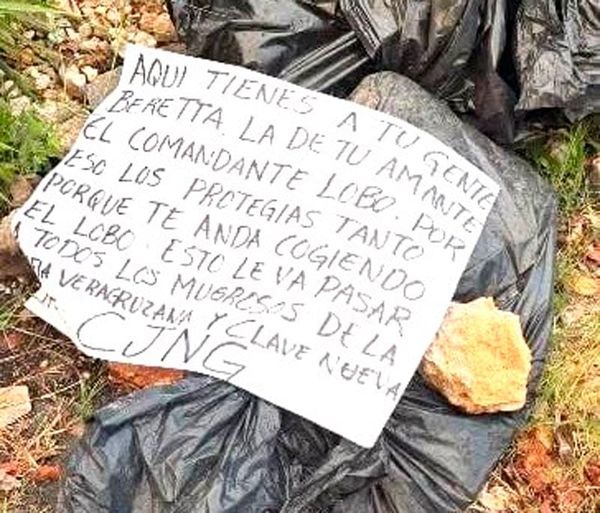 AQUI TIENES A TU GENTE
BERETTA LA DE TU AMANTE
EL COMANDANTE LOBO. POR
ESO LOS PROTEGIAS TANTO
PORQUE TE ANDA COGIENDO
EL LOBO. ESTO LE VA PASAR
A TODOS LOS MUGROSOS DE LA
VERACRUZANA Y CLAVE NUEVA
CJNG